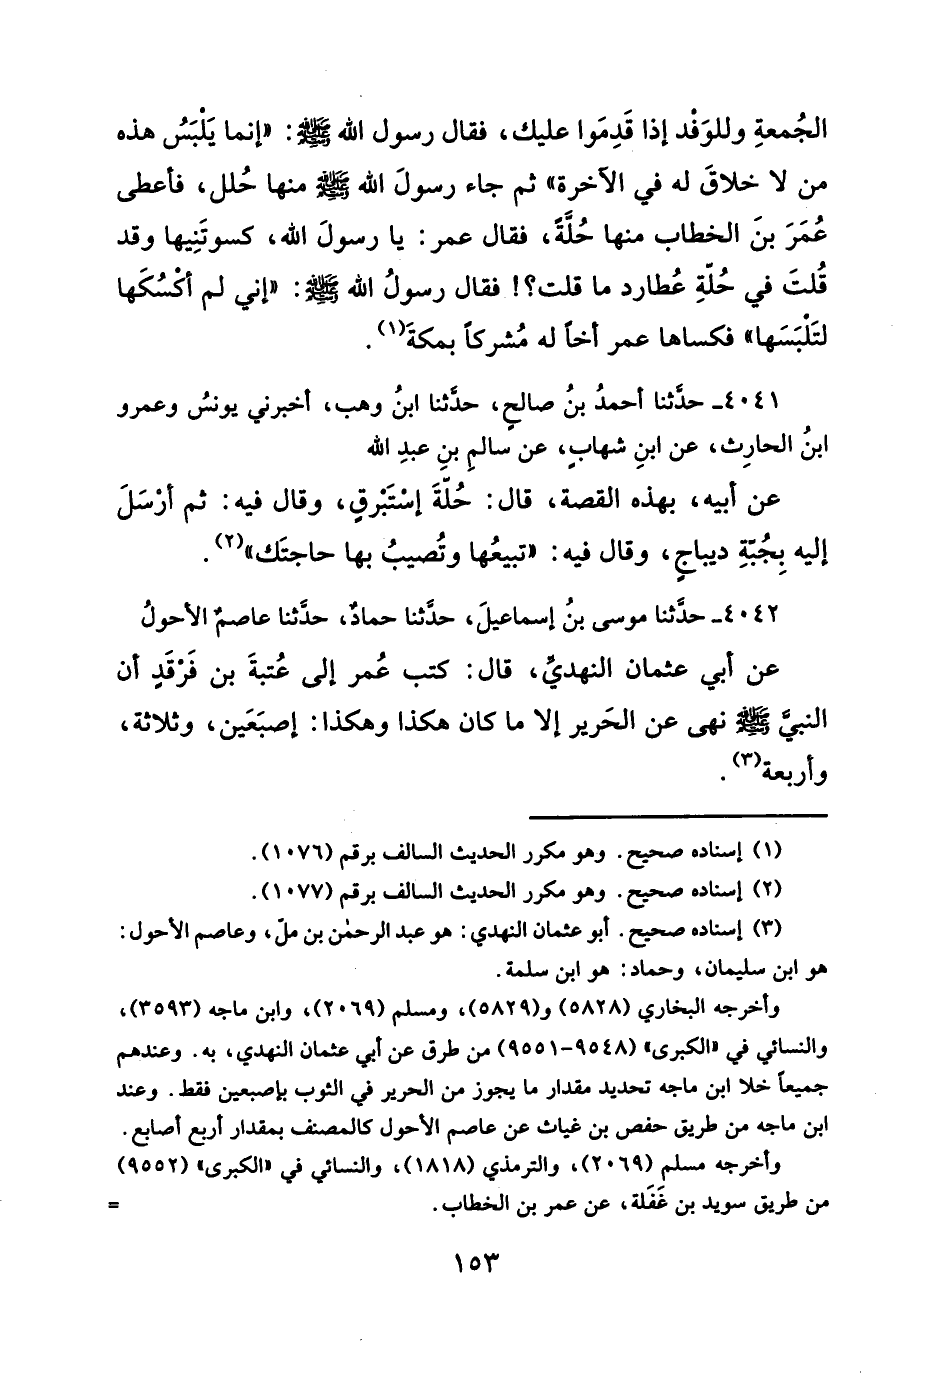 الجُمعةِ وللوَفْد إذا قَدِمَوا عليك، فقال رسول الله ﷺ: «إنما يَلْبَسُ هذه
من لا خلاقَ له في الآخرة» ثم جاء رسولَ الله ﷺ منها حُلل، فأعطى
عُمَرَ بنَ الخطاب منها حُلَّةً، فقال عمر: يا رسولَ الله، كسوتَنِيها وقد
قُلتَ في حُلّةِ عُطارد ما قلت؟! فقال رسولُ الله ﷺ: «إني لم أكْسُكَها
لتَلْبَسَها» فكساها عمر أخاً له مُشركاً بمكةَ(١).
٤٠٤١ـ حدَّثنا أحمدُ بنُ صالحٍ، حدَّثنا ابنُ وهب، أخبرني يونسُ وعمرو
ابنُ الحارِث، عن ابنِ شهابٍ، عن سالمِ بنِ عبدِ الله
عن أبيه، بهذه القصة، قال: حُلّةَ إسْتَبْرقٍ، وقال فيه: ثم أرْسَلَ
إليه بِجُبّةِ ديباجٍ، وقال فيه: «تبيعُها وتُصيبُ بها حاجتَك»(٢).
٤٠٤٢ـ حدَّثنا موسى بنُ إسماعيلَ، حدَّثنا حمادٌ، حدَّثنا عاصمٌ الأحولُ
عن أبي عثمان النهديِّ، قال: كتب عُمر إلى عُتبةَ بن فَرْقَدٍ أن
النبيَّ ﷺ نهى عن الحَرير إلا ما كان هكذا وهكذا: إصبَعَين، وثلاثة،
وأربعة(٣).
(١) إسناده صحيح. وهو مكرر الحديث السالف برقم (١٠٧٦).
(٢) إسناده صحيح. وهو مكرر الحديث السالف برقم (١٠٧٧).
(٣) إسناده صحيح. أبو عثمان النهدي: هو عبد الرحمٰن بن ملّ، وعاصم الأحول:
هو ابن سليمان، وحماد: هو ابن سلمة.
وأخرجه البخاري (٥٨٢٨) و(٥٨٢٩)، ومسلم (٢٠٦٩)، وابن ماجه (٣٥٩٣)،
والنسائي في «الكبرى» (٩٥٤٨-٩٥٥١) من طرق عن أبي عثمان النهدي، به. وعندهم
جميعاً خلا ابن ماجه تحديد مقدار ما يجوز من الحرير في الثوب بإصبعين فقط. وعند
ابن ماجه من طريق حفص بن غياث عن عاصم الأحول كالمصنف بمقدار أربع أصابع.
وأخرجه مسلم (٢٠٦٩)، والترمذي (١٨١٨)، والنسائي في «الكبرى» (٩٥٥٢)
من طريق سويد بن غَفَلة، عن عمر بن الخطاب. =
١٥٣